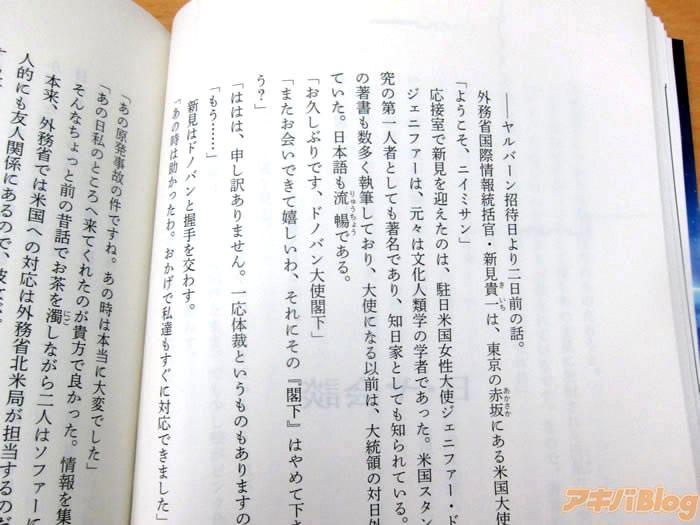 ――ヤルバーン招待日より二日前の話。
外務省国際情報統括官・新見貴一は、東京の赤坂にある米国大使
きいち
あかさか
「ようこそ、ニイミサン」
応接室で新見を迎えたのは、駐日米国女性大使ジェニファー・ド
ジェニファーは、元々は文化人類学の学者であった。米国スタン
究の第一人者としても著名であり、知日家としても知られている。
の著書も数多く執筆しており、大使になる以前は、大統領の対日外
ていた。日本語も流暢である。
りゅうちょう
「お久しぶりです、ドノバン大使閣下」
「またお会いできて嬉しいわ、それにその『閣下』はやめて下さ
う?」
「ははは、申し訳ありません。一応体裁というものもありますの
「もう……」
新見はドノバンと握手を交わす。
「あの時は助かったわ。おかげで私達もすぐに対応できました」
「あの原発事故の件ですね。あの時は本当に大変でした」
「あの日私のところへ来てくれたのが貴方で良かった。情報を集
そんなちょっと前の昔話でお茶を濁しながら二人はソファーに
にご
本来、外務省では米国への対応は外務省北米局が担当するのだ
人的にも友人関係にあるので、彼
アキバBlog